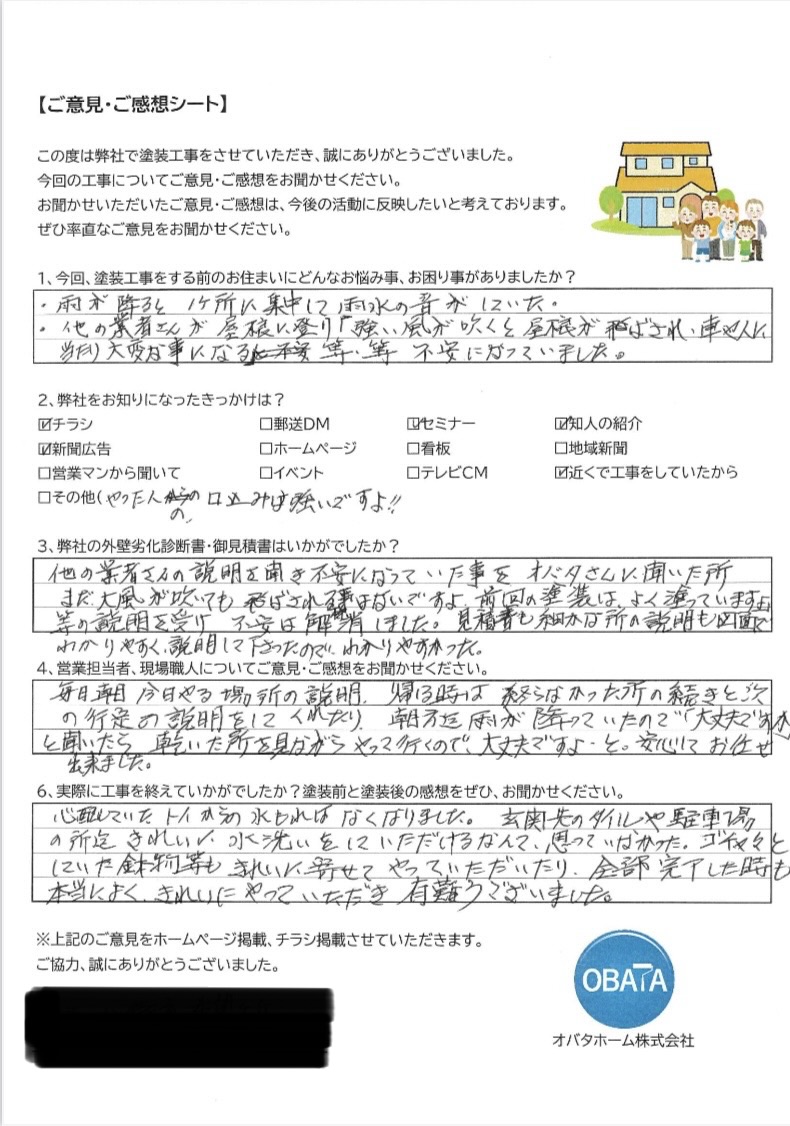 【ご意見・ご感想シート】
この度は弊社で塗装工事をさせていただき、誠にありがとうございました。
今回の工事についてご意見・ご感想をお聞かせください。
お聞かせいただいたご意見・ご感想は、今後の活動に反映したいと考えております。
ぜひ率直なご意見をお聞かせください。
1、今回、塗装工事をする前のお住まいにどんなお悩み事、お困り事がありましたか？
・雨が降ると 1ヶ所に集中して 雨水の音がしていた。
・他の業者さんが屋根に登り「強い風が吹くと屋根が飛ばされ、車や人に
当たり大変な事になる 等・等 不安になっていました。
2、弊社をお知りになったきっかけは？
☑チラシ ☐郵送DM ☑セミナー ☑知人の紹介
☑新聞広告 ☐ホームページ ☐看板 ☐地域新聞
☐営業マンから聞いて ☐イベント ☐テレビCM ☑近くで工事をしていたから
☐その他(やった人の 口込みは強いですよ!!
3、弊社の外壁劣化診断書・御見積書はいかがでしたか？
他の業者さんの説明を聞き不安になっていた事を オバタさんに聞いた所
まだ大風が吹いても飛ばされる事はないですよ、前回の塗装は、よく塗っていますよ
等の説明を受け 不安は解消しました。見積書も細かな所の説明も図面で
わかりやすく、説明して下さったので、わかりやすかった。
4、営業担当者、現場職人についてご意見・ご感想をお聞かせください。
毎日朝 今日やる場所の説明、帰る時は 終らなかった所の続きと次
の行定の説明をしてくれたり、朝方迄雨が降っていたので「大丈夫ですか
と聞いたら 乾いた所を見ながらやって行くので、大丈夫ですよーと。安心してお任せ
出来ました。
6、実際に工事を終えていかがでしたか？塗装前と塗装後の感想をぜひ、お聞かせください。
心配していたトイからの水もれはなくなりました。玄関先のタイルや駐車場
の所迄きれいに水洗いをしていただけるなんて、思っていなかった。ゴチャゴチャと
していた鉢物等もきれいに寄せてやっていただいたり、全部完了した時も
本当によく、きれいにやっていただき 有難うございました。
※上記のご意見をホームページ掲載、チラシ掲載させていただきます。
ご協力、誠にありがとうございました。
OBATA
オバタホーム株式会社